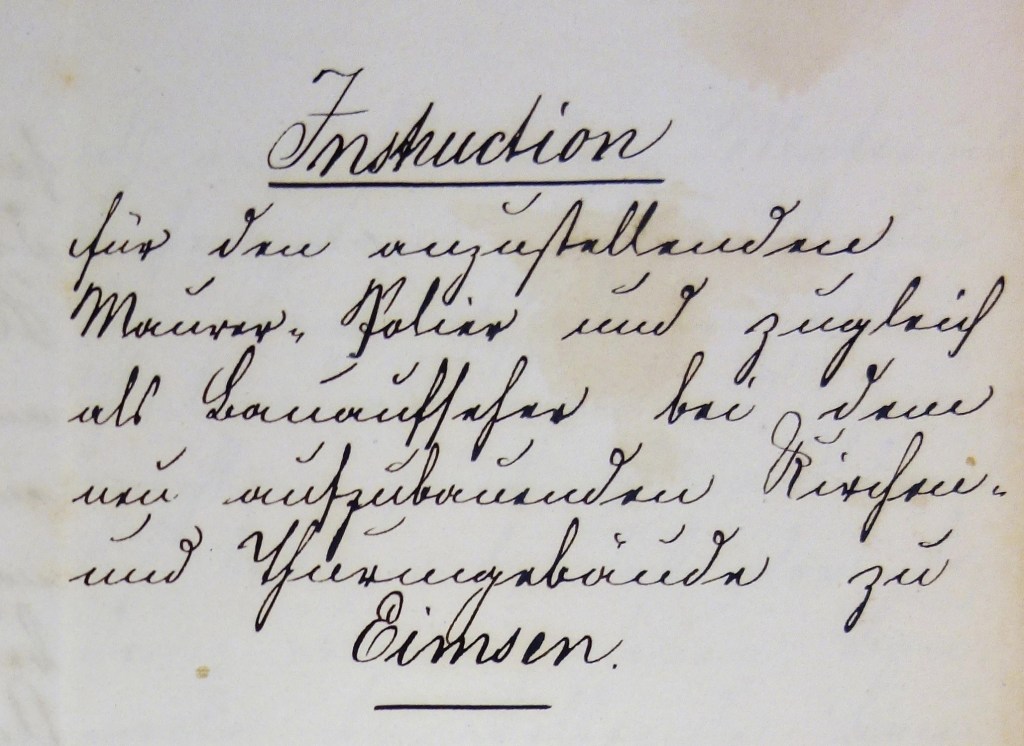 Instruction
für den anzustellenden
Maurer- Polier und zugleich
als Bauaufseher bei dem
neu aufzubauenden Kirchen-
und Thurmgebäude zu
Eimsen.